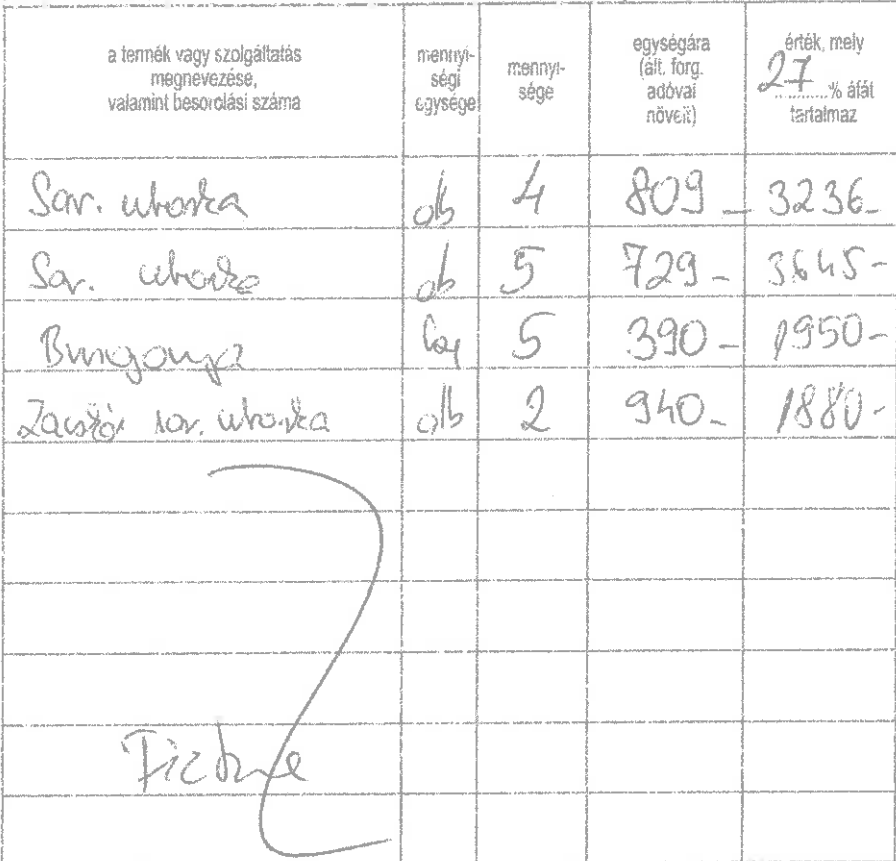 a termék vagy szolgáltatás
megnevezése,
valamint besorolási száma
mennyi-
ségi
egysége
mennyi-
sége
egységára
(ált. forg.
adóval
növelt)
érték, mely
27 % áfát
tartalmaz
Sav. uborka db 4 809 - 3236 -
Sav. uborka db 5 729 - 3645 -
Burgonya kg 5 390 - 1950 -
Zacskós sav. uborka db 2 940 - 1880 -
Fizetve